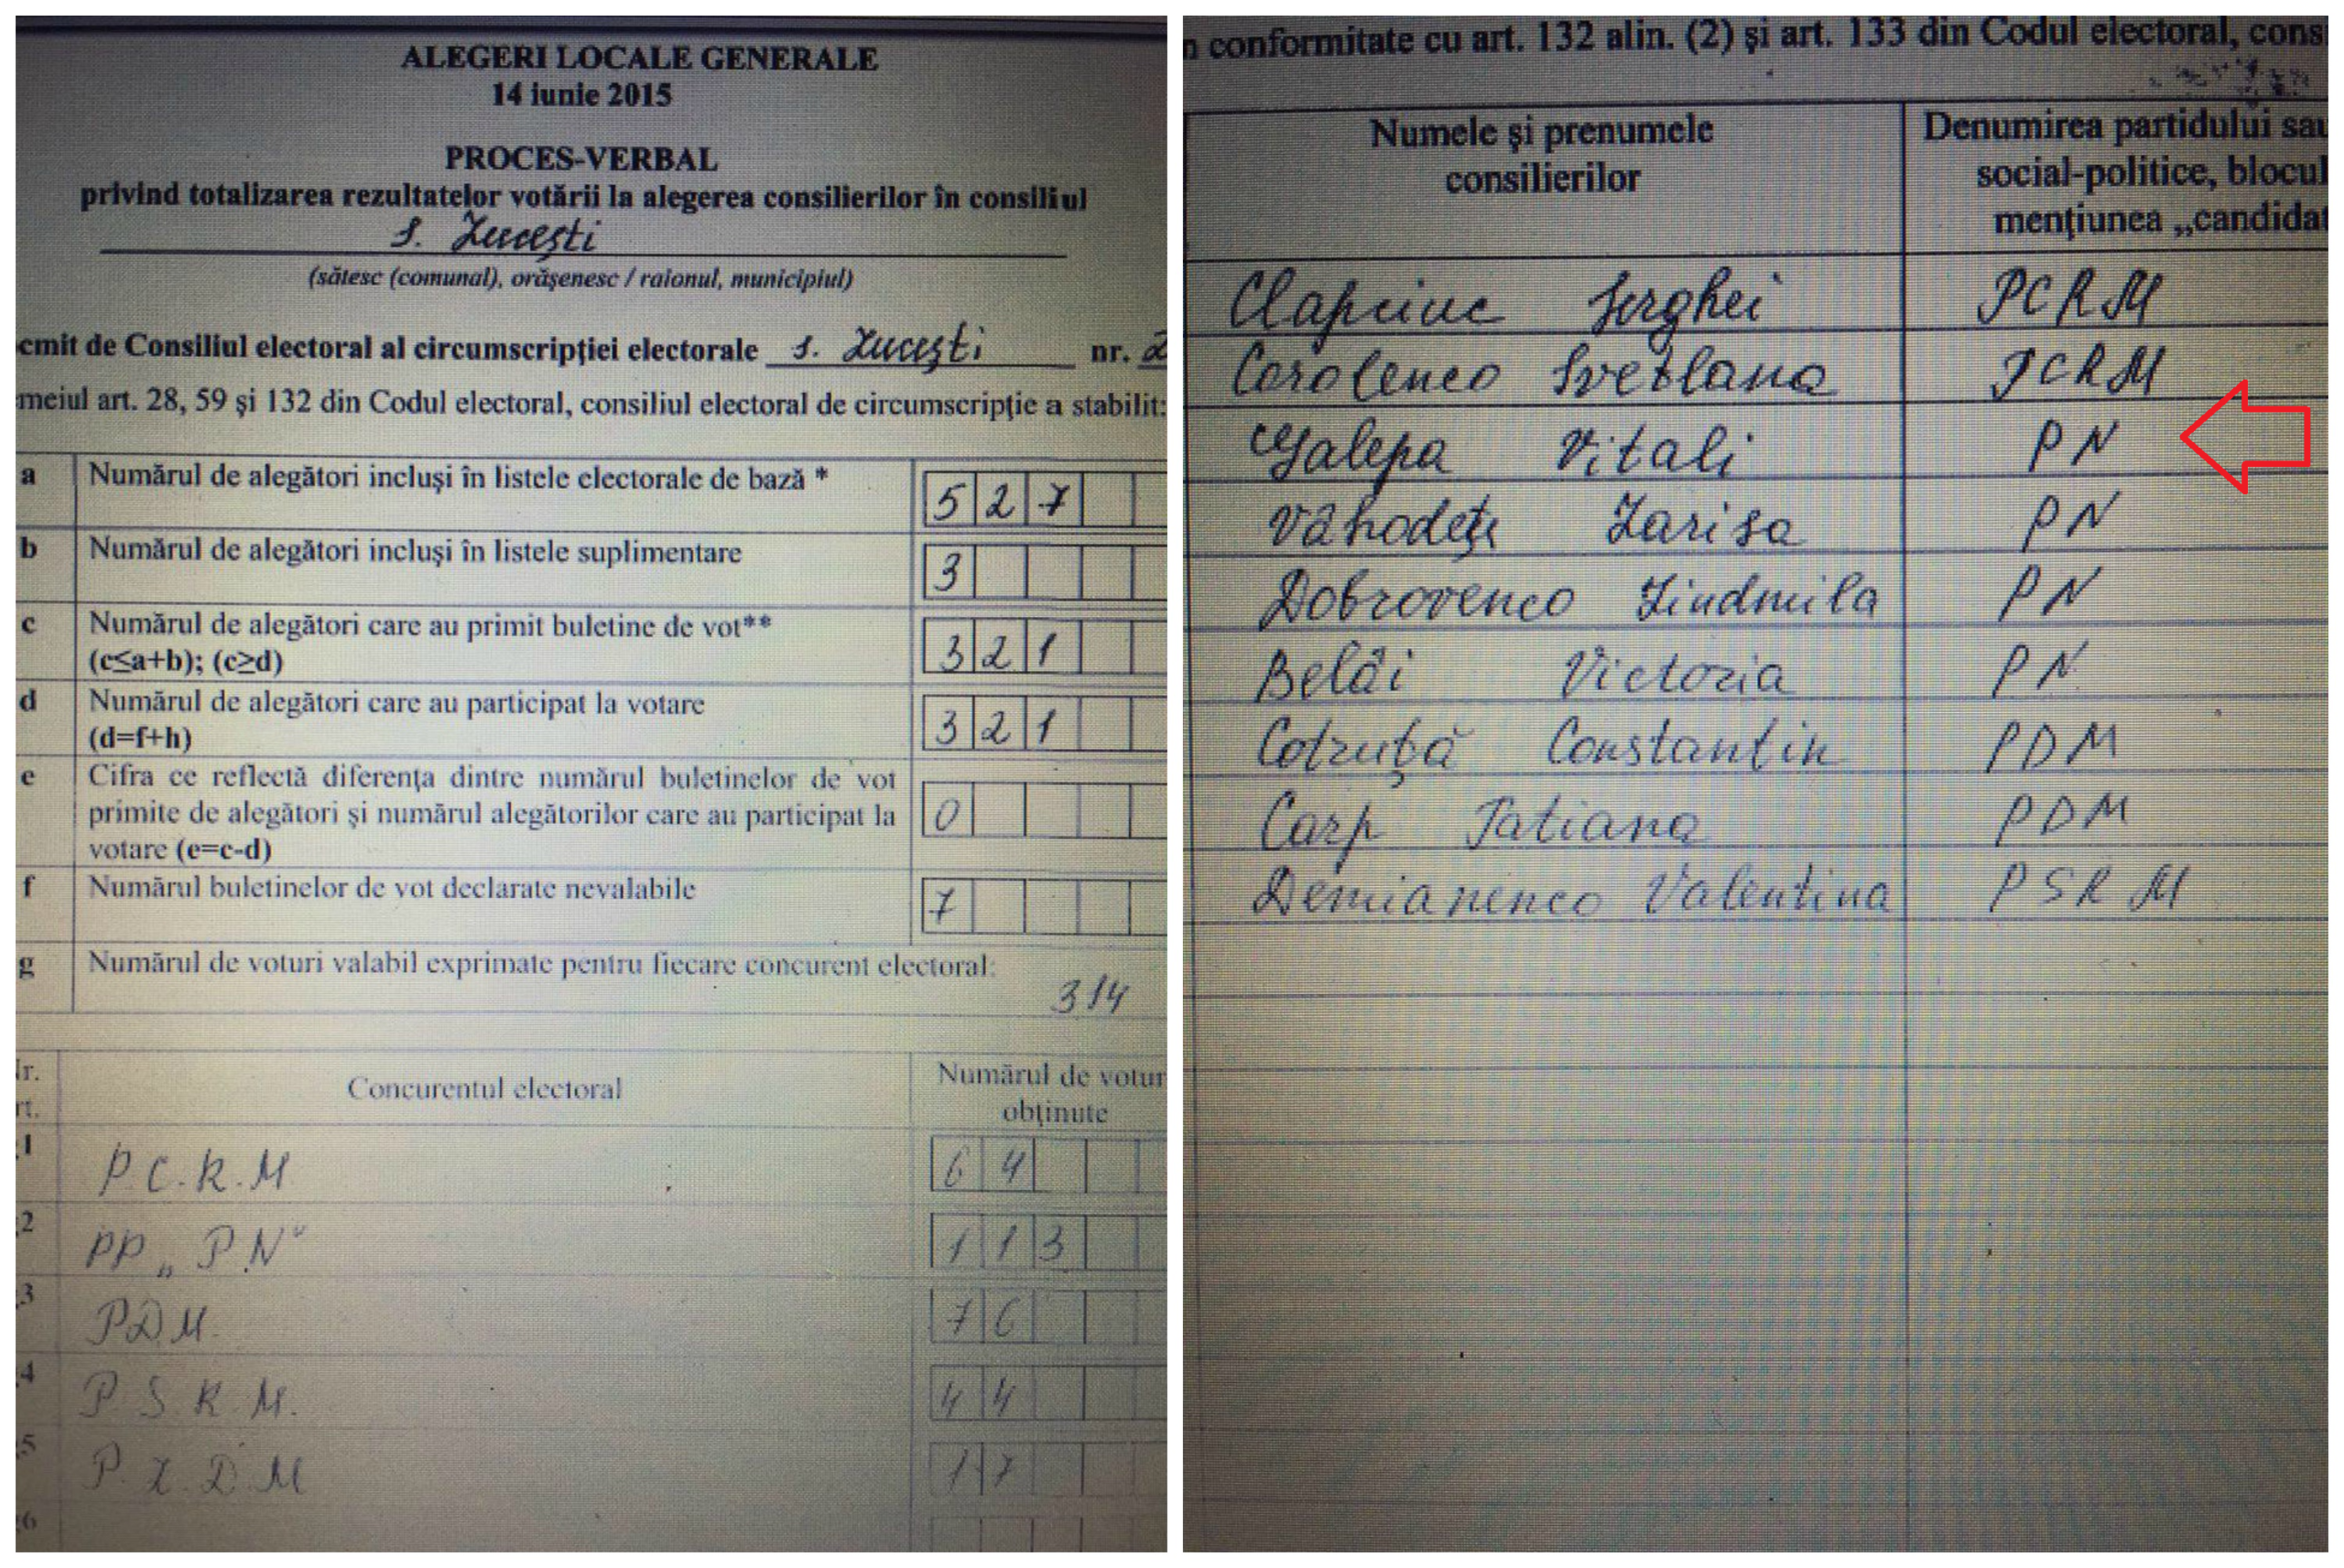 ALEGERI LOCALE GENERALE
14 iunie 2015
PROCES-VERBAL
privind totalizarea rezultatelor votării la alegerea consilierilor în consiliul
s. Lucești
(sătesc (comunal), orăşenesc / raionul, municipiul)
emit de Consiliul electoral al circumscripţiei electorale s. Lucești nr. 2
meiul art. 28, 59 şi 132 din Codul electoral, consiliul electoral de circumscripţie a stabilit:
a Numărul de alegători incluşi în listele electorale de bază * 527
b Numărul de alegători incluşi în listele suplimentare 3
c Numărul de alegători care au primit buletine de vot** 321
(c≤a+b); (c≥d)
d Numărul de alegători care au participat la votare 321
(d=f+h)
e Cifra ce reflectă diferenţa dintre numărul buletinelor de vot
primite de alegători şi numărul alegătorilor care au participat la 0
votare (e=c-d)
f Numărul buletinelor de vot declarate nevalabile 7
g Numărul de voturi valabil exprimate pentru fiecare concurent electoral:
314
Nr. Concurentul electoral Numărul de votur
rt. obţinute
1 P.C.R.M 64
2 PP „P.N" 113
3 PDM. 76
4 P.S.R.M. 44
5 P.L.D.M 17
6
n conformitate cu art. 132 alin. (2) şi art. 133 din Codul electoral, cons
Numele şi prenumele Denumirea partidului sau
consilierilor social-politice, blocul
menţiunea „candidat
Clapciuc Serghei PCRM
Corolenco Svetlana PCRM
Galepa Vitali PN
Vahodeț Larisa PN
Dobrovenco Liudmila PN
Belâi Victoria PN
Cotruță Constantin PDM
Carp Tatiana PDM
Demianenco Valentina PSRM